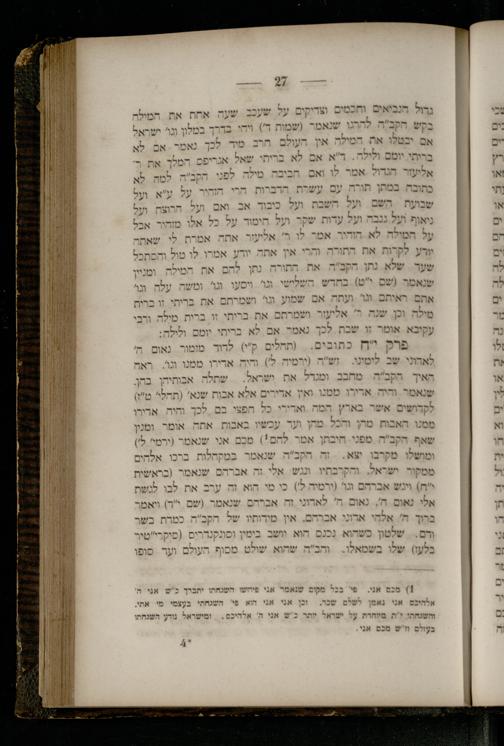 27
גדול הנביאים וחכמים וצדיקים על שעכב שעה אחת את המילה
בקש הקב״ה להרגו שנאמר (שמות ד׳) ויהי בדרך במלון וגו׳ ישראל
אם יבטלו את המילה אין העולם חרב מיד לכך נאמר אם לא
בריתי יומם ולילה. ד״א אם לא בריתי שאל אגריפס המלך את ר׳
אליעזר הגדול אמר לו ואם חביבה מילה לפני הקב״ה למה לא
כתובה במתן תורה עם עשרת הדברות הרי הזהיר על ע״א ועל
שבועת השם ועל השבת ועל כיבוד אב ואם ועל הרוצח ועל
ניאוף ועל גנבה ועל עדות שקר ועל חימוד על כל אלו מזהיר אבל
על המילה לא הזהיר אמר לו ר׳ אליעזר אתה אמרת לי שאתה
יודע לקרות את התורה והרי אין אתה יודע אמרו לו טול והסתכל
שעד שלא נתן הקב״ה את התורה נתן להם את המילה ומנין
שנאמר (שם י״ט) בחדש השלישי וגו׳ ויסעו וגו׳ ומשה עלה וגו׳
אתם ראיתם וגו׳ ועתה אם שמוע וגו׳ ושמרתם את בריתי זו ברית
מילה וכן שנה ר׳ אליעזר ושמרתם את בריתי זו ברית מילה ורבי
עקיבא אומר זו שבת לכך נאמר אם לא בריתי יומם ולילה:
פרק י״ח כתובים. (תהלים ק״י) לדוד מזמור נאום ה׳
לאדוני שב לימיני. זש״ה (ירמיה ל׳) והיה אדירו ממנו וגו׳. ראה
האיך הקב״ה מחבב ומגדל את ישראל. שתלה אבותיהן בהן.
שנאמר והיה אדירו ממנו ואין אדירים אלא אבות שנא׳ (תהלי׳ ט״ז)
לקדושים אשר בארץ המה ואדירי כל חפצי בם לכך והיה אדירו
ממנו האבות מהן והכל מהן ועד עכשיו באבות אתה אומר ומנין
שאף הקב״ה מפני חיבתן אמר להם1) מכם אני שנאמר (ירמי׳ ל׳)
ומושלו מקרבו יצא. זה הקב״ה שנאמר במקהלות ברכו אלהים
ממקור ישראל. והקרבתיו ונגש אלי זה אברהם שנאמר (בראשית
י״ח) ויגש אברהם וגו׳ (ירמיה ל׳) כי מי הוא זה ערב את לבו לגשת
אלי נאום ה׳. נאום ה׳ לאדוני זה אברהם שנאמר (שם י״ד) ויאמר
ברוך ה׳ אלהי אדוני אברהם. אין מידותיו של הקב״ה כמדת בשר
ודם. שלטון כשהוא נכנס הוא יושב בימין וסונקנדרים (סיקרי״טיר
בלעז) שלו בשמאלו. והב״ה שהוא שולט מסוף העולם ועד סופו
1) מכם אני. פי׳ בכל מקום שנאמר אני פירושו השגחתו יתברך כ״ש אני ה׳
אלהיכם אני נאמן לשלם שכר. וכן אני אני הוא פי׳ השגחתי בעצמי מי אתי.
והשגחתו ית׳ מיוחדת על ישראל יותר כ״ש אני ה׳ אלהיכם. ומישראל נודע השגחתו
בעולם וז״ש מכם אני.
4*